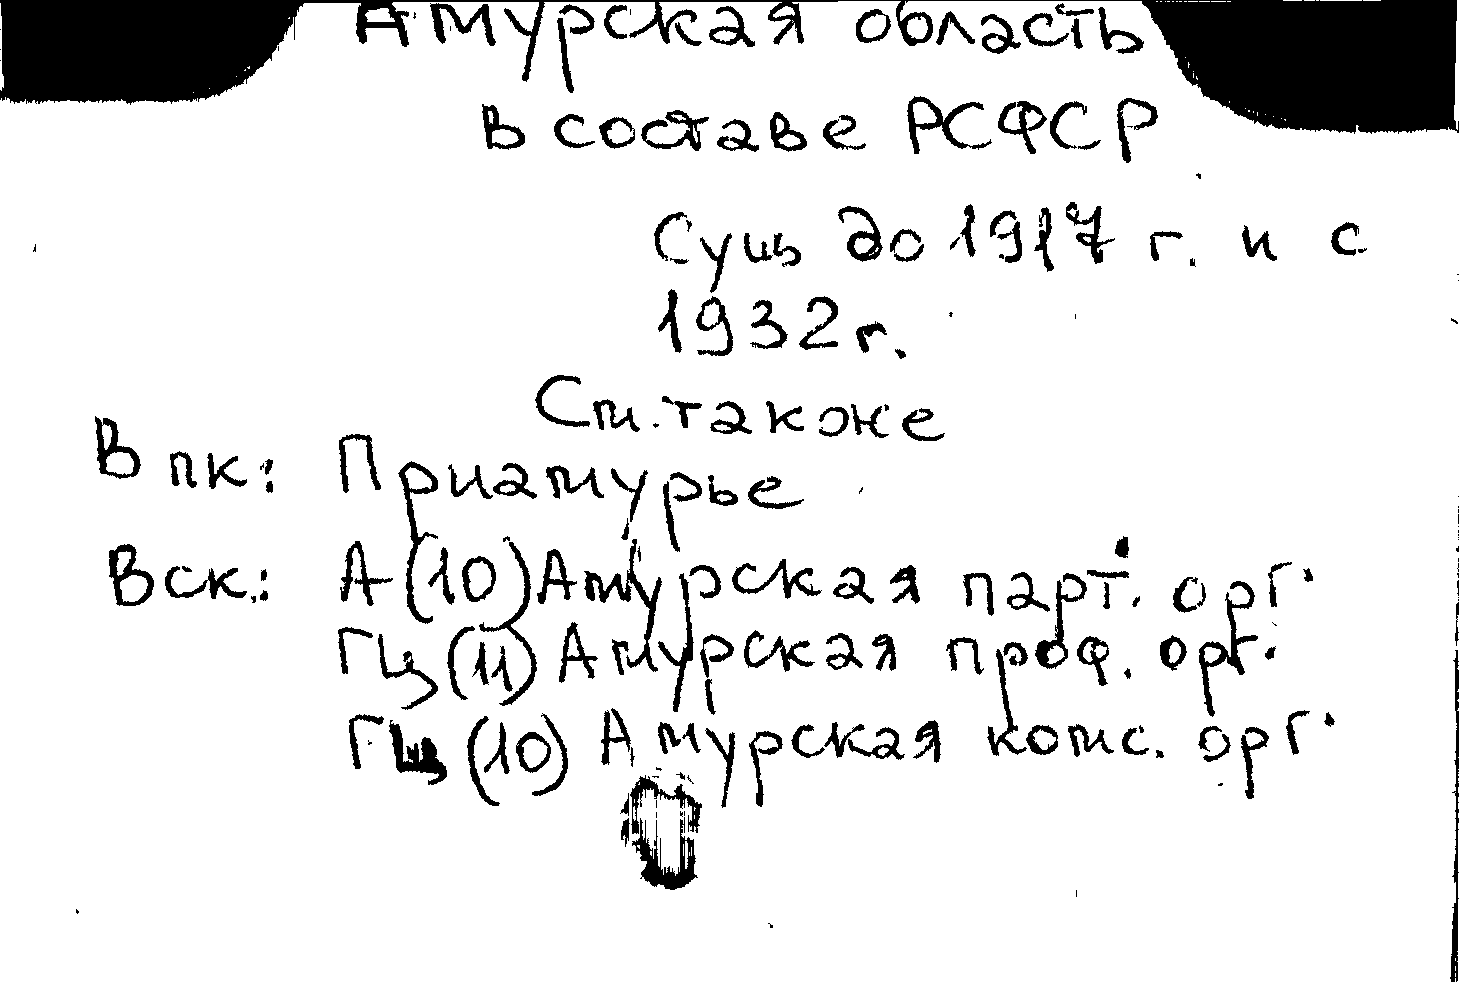 Амурская область
в составе РСФСР
Сущ до 1917 г. и с
1932 г.
См. также
В пк: Приамурье
В ск.: А (10) Амурская парт. орг.
ГЦ (11) Амурская проф. орг.
ГЦ (10) Амурская комс. орг.